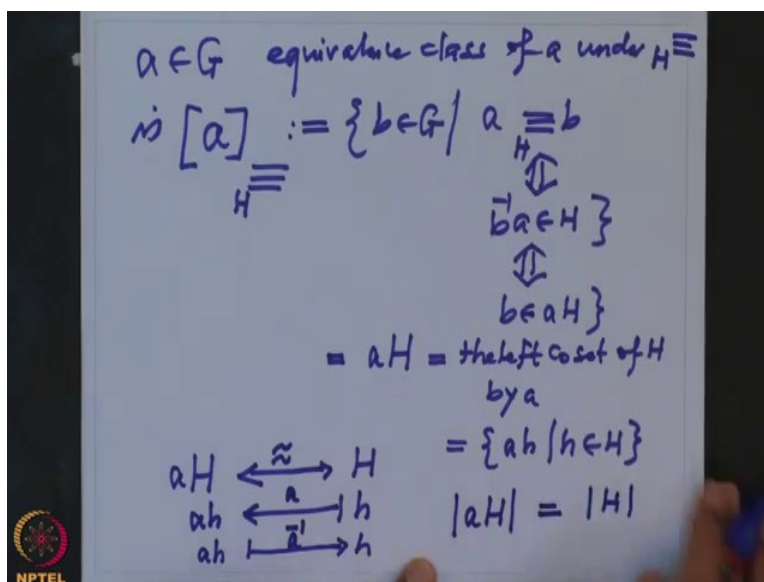 a ∈ G equivalence class of a under H≡
is [a] H≡ := { b ∈ G | a H≡ b
⇕
b⁻¹a ∈ H }
⇕
b ∈ aH }
= aH = the left coset of H
by a
= { ah | h ∈ H }
aH ⟷≈ H
ah ⟵a| h
ah |a⁻¹⟶ h
|aH| = |H|
NPTEL